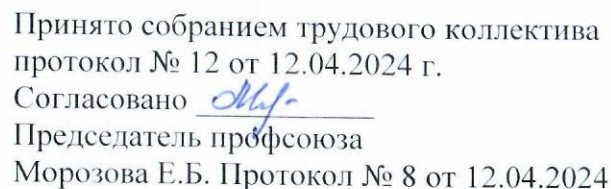 Принято собранием трудового коллектива
протокол № 12 от 12.04.2024 г.
Согласовано
Председатель профсоюза
Морозова Е.Б. Протокол № 8 от 12.04.2024